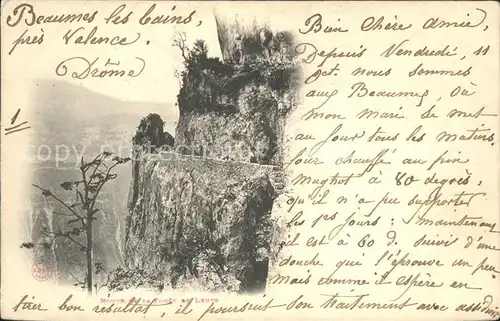 Beaumes les bains,
près Valence.
Drôme
1
Bien Chère amie,
Depuis Vendredi, 11
oct. nous sommes
aux Beaumes, où
mon mari se met
au four tous les matins.
four chauffé au pin
mughot à 80 degrès,
qu'il n'a pu supporter
les 1rs jours: maintenant
il est à 60 d. suivi d'une
douche qui l'éprouve un peu
Mais comme il espère en
tirer bon résultat, il poursuit son traitement avec assidu
ROUTE DE LA FORÊT DE LENTE